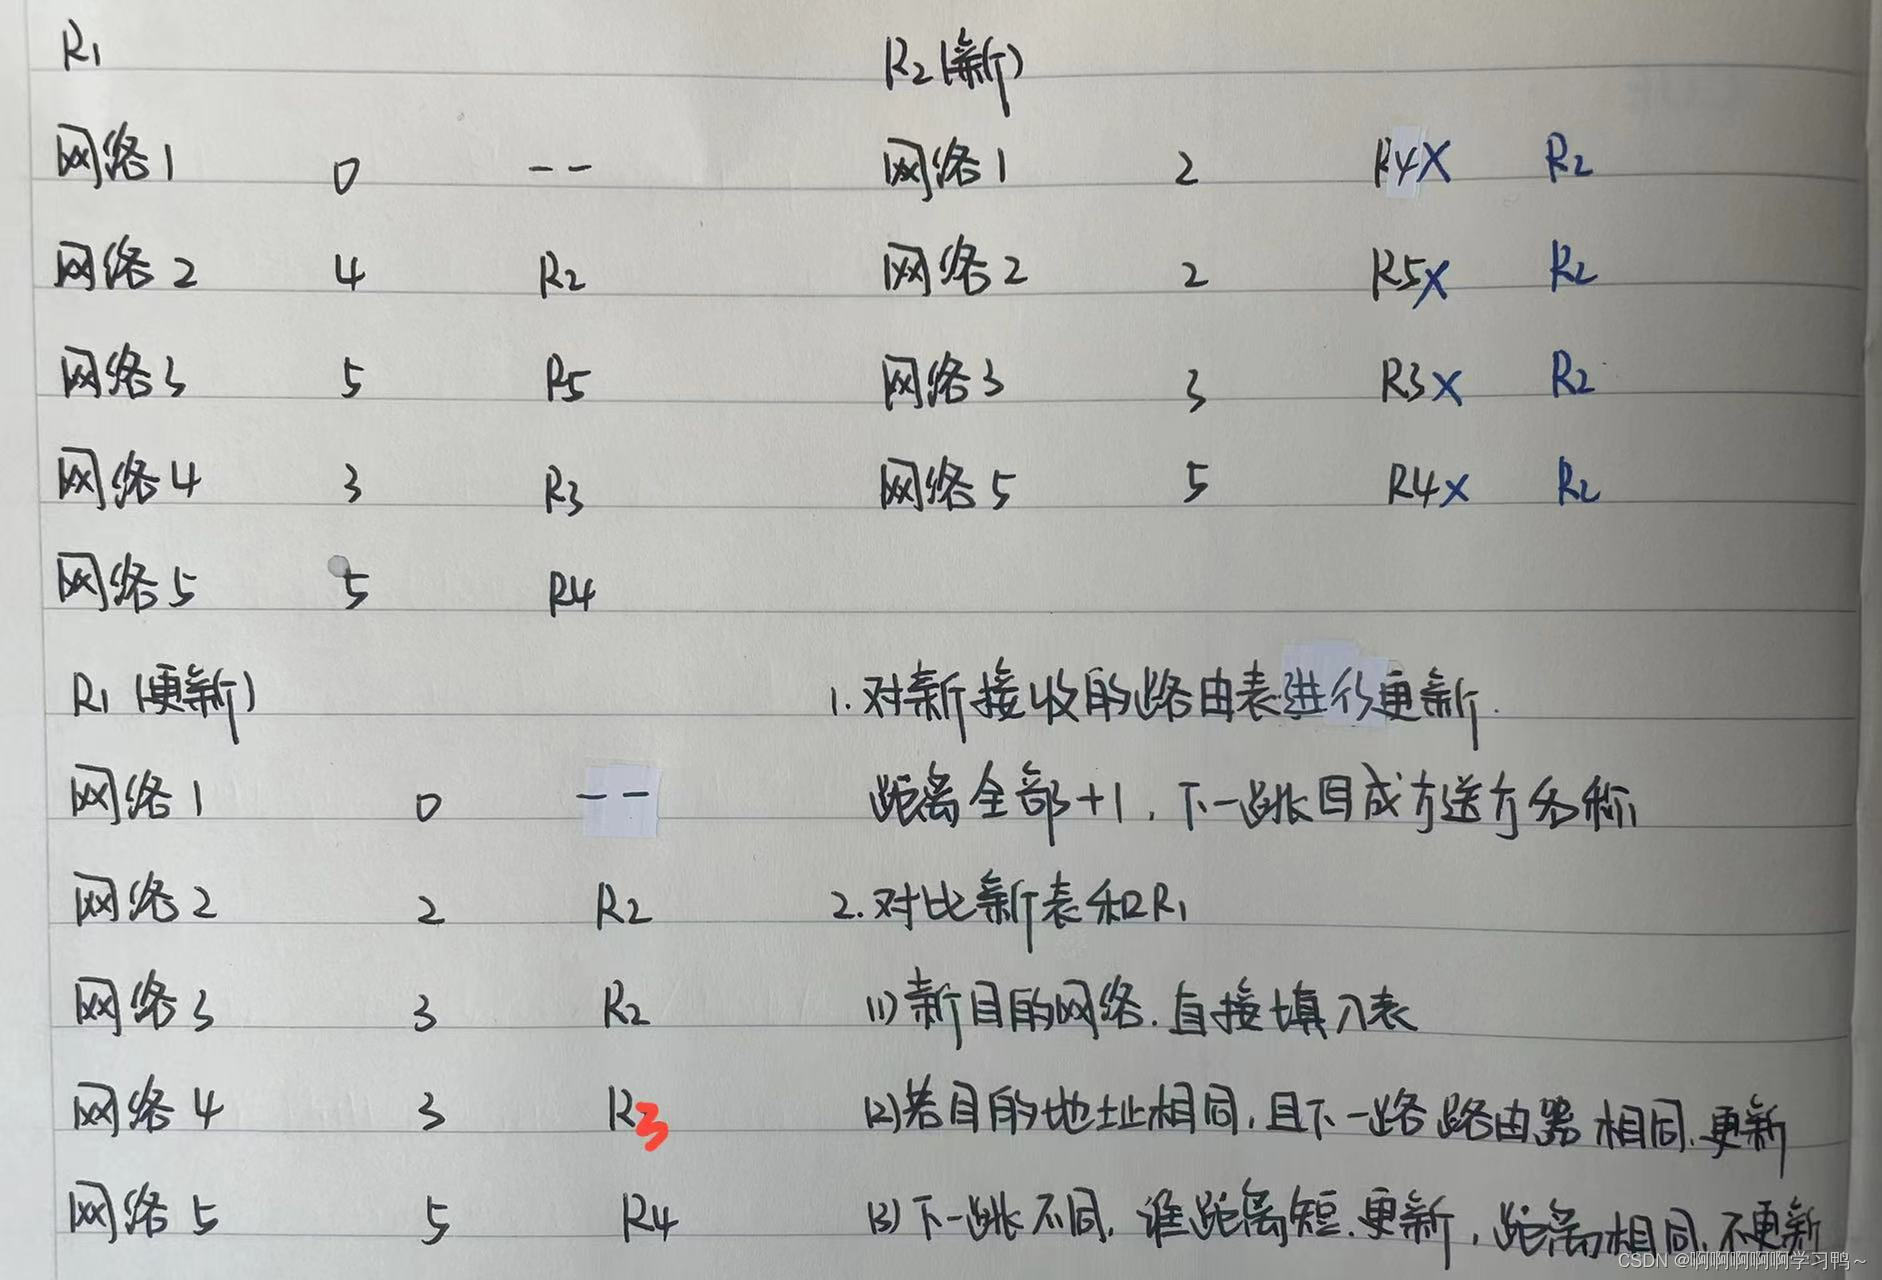 R1
R2(新)
网络1 0 -- 网络1 2 R4X R2
网络2 4 R2 网络2 2 R5X R2
网络3 5 R5 网络3 3 R3X R2
网络4 3 R3 网络5 5 R4X R2
网络5 5 R4
R1(更新) 1.对新接收的路由表进行更新.
网络1 0 -- 距离全部+1,下一跳目成方送方名称
网络2 2 R2 2.对比新表和R1
网络3 3 R2 (1)新目的网络.直接填入表
网络4 3 R3 (2)若目的地址相同,且下一路路由器相同.更新
网络5 5 R4 (3)下一跳不同,谁距离短.更新,距离相同.不更新
CSDN @啊啊啊啊啊学习鸭~